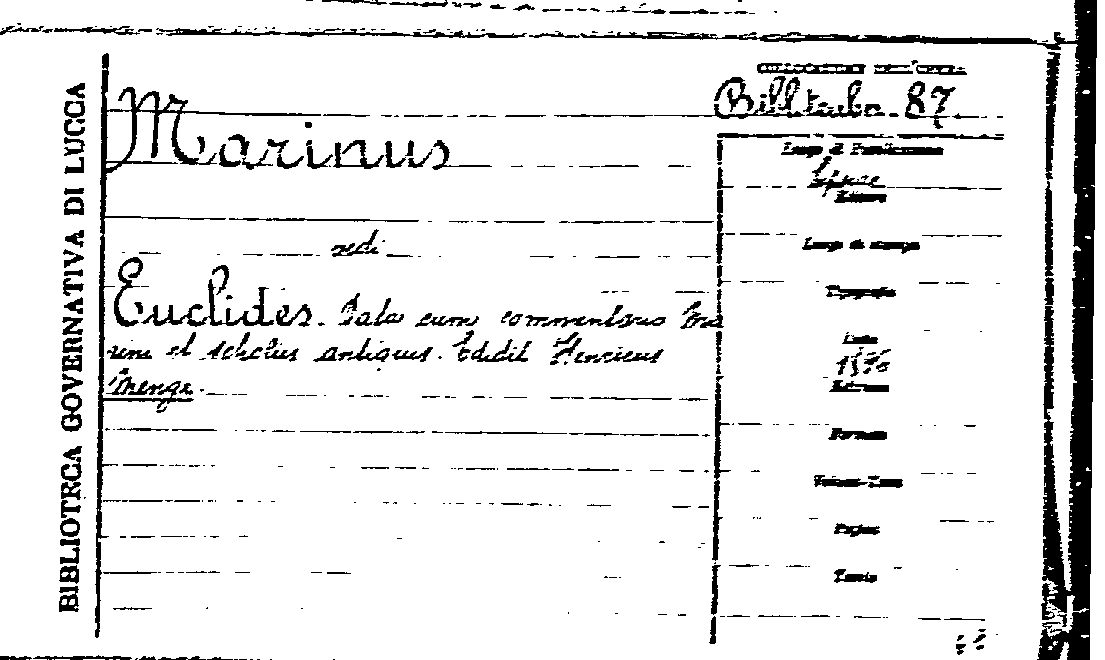 BIBLIOTECA GOVERNATIVA DI LUCCA
Marinus
87
Luogo di Pubblicazione
Lipsiae
Editore
Luogo di stampa
vedi
Tipografia
Euclides. Data cum commentario Ma
Data
rini et scholiis antiquis. Edidit Henricus
1896
Menge.
Edizione
Formato
Volumi-Tomi
Pagine
Tavole